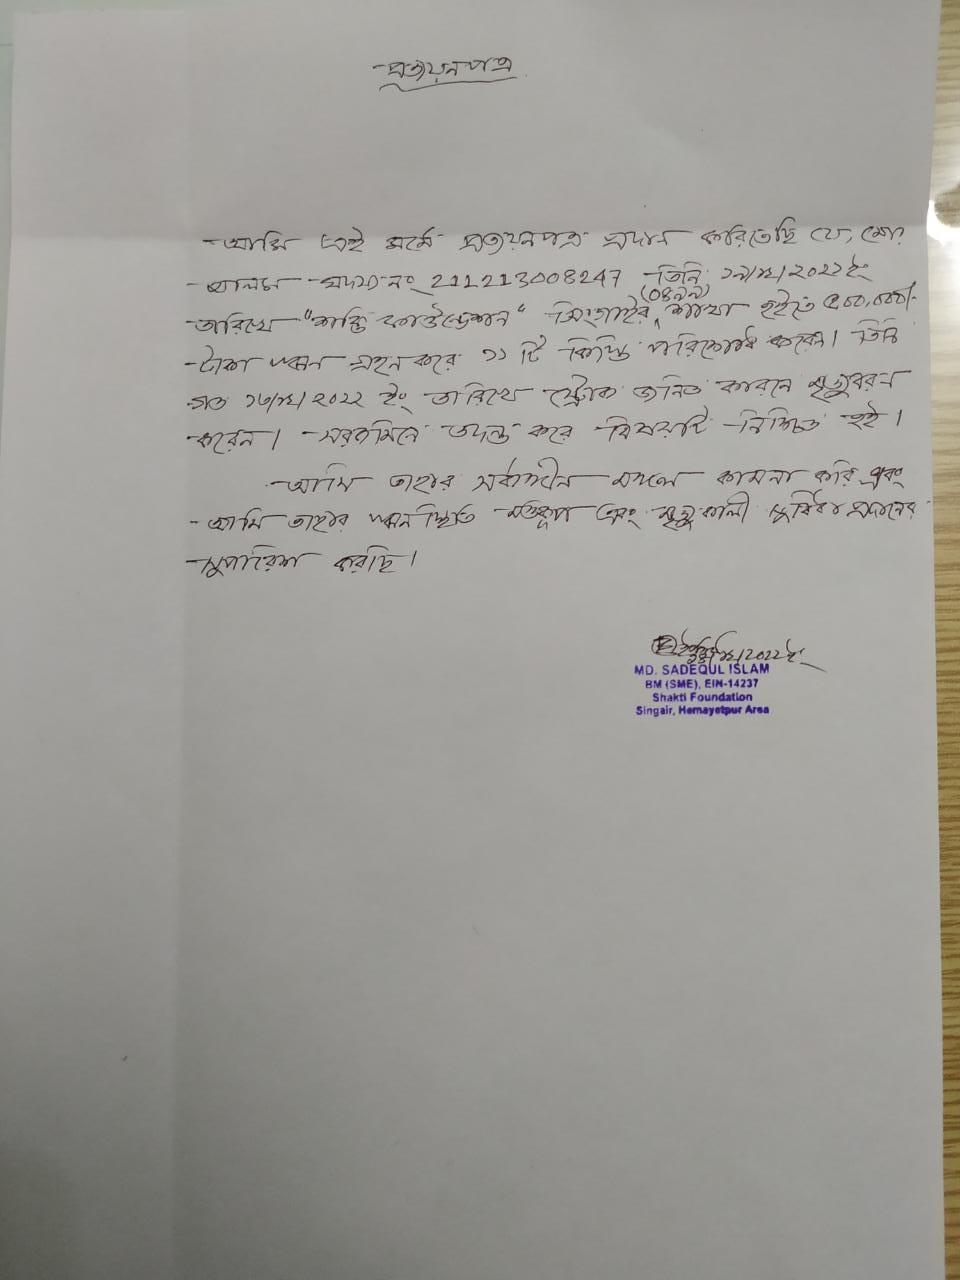 প্রত্যয়নপত্র
আমি এই মর্মে প্রত্যয়নপত্র প্রদান করিতেছি যে, মোঃ
সদস্য নং 211213008247 তিনি
তারিখে "শক্তি ফাউন্ডেশন" সিংগাইর শাখা হইতে ৫০০,০০০/-
টাকা ঋন গ্রহন করে ১১ টি কিস্তি পরিশোধ করেন। তিনি
গত ২০২২ ইং তারিখে স্ট্রোক জনিত কারনে মৃত্যুবরন
করেন। সরজমিনে তদন্ত করে বিষয়টি নিশ্চিত হই।
আমি তাহার সর্বাঙ্গীন মঙ্গল কামনা করি এবং
আমি তাহার ঋন স্থিতি মওকুপ এবং মৃত্যুকালী প্রদানের
সুপারিশ করছি।
MD. SADEQUL ISLAM
BM (SME), EIN-14237
Shakti Foundation
Singair, Hemayetpur Area